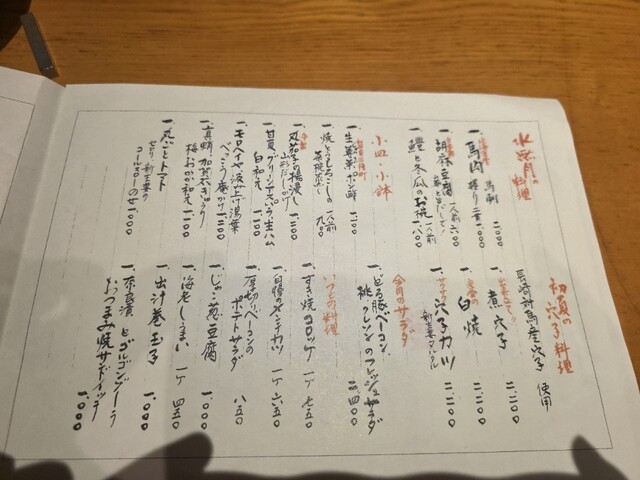 水無月の料理
一、馬肉 馬刺 二、二〇〇
握り 二貫 一、〇〇〇
一、胡麻豆腐 一人前 六〇〇
一、鱧と冬瓜のお椀 一人前 一、八〇〇
小皿・小鉢
一、生蓴菜ポン酢 一、二〇〇
一、焼とうもろこしの茶碗蒸し 一人前 九〇〇
一、丸茄子の揚浸し 一、二〇〇
山形だしかけ
一、甘夏、グリーンアスパラ、生ハム
白和え 一、一〇〇
一、モロヘイヤ 汲み上げ湯葉
べっこう庵かけ 一、一〇〇
一、真鯛 加賀太きゅうり
梅おかか和え 一、一〇〇
一、丸ごとトマト
セロリ 新生姜の
コールスローのせ 一、〇〇〇
初夏の穴子料理
長崎対馬産穴子 使用
一、煮穴子 二、二〇〇
一、白焼 二、二〇〇
一、穴子カツ 二、二〇〇
新生姜タルタル
今月のサラダ
一、どろ豚ベーコン、
桃、クレソンのフレッシュサラダ 二、四〇〇
いつもの料理
一、すき焼コロッケ 一ケ 七五〇
一、自慢のメンチカツ 一ケ 六五〇
一、厚切りベーコンの
ポテトサラダ 八五〇
一、じゃこ葱豆腐 一、〇〇〇
一、海老しうまい 一ケ 四五〇
一、出汁巻玉子 一、〇〇〇
一、奈良漬とゴルゴンゾーラ
おつまみ焼サンドイッチ 一、〇〇〇